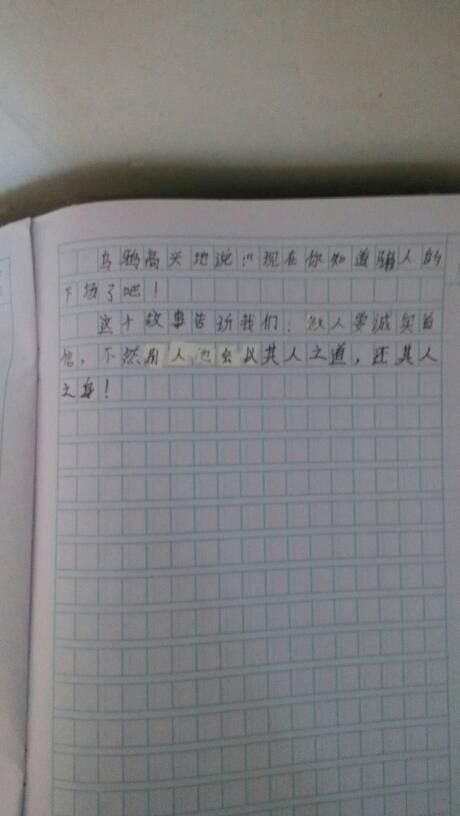 乌鸦高兴地说:“现在你知道骗人的
下场了吧!
这个故事告诉我们:做人要诚实自
信,不然别人也会以其人之道,还其人
之身!